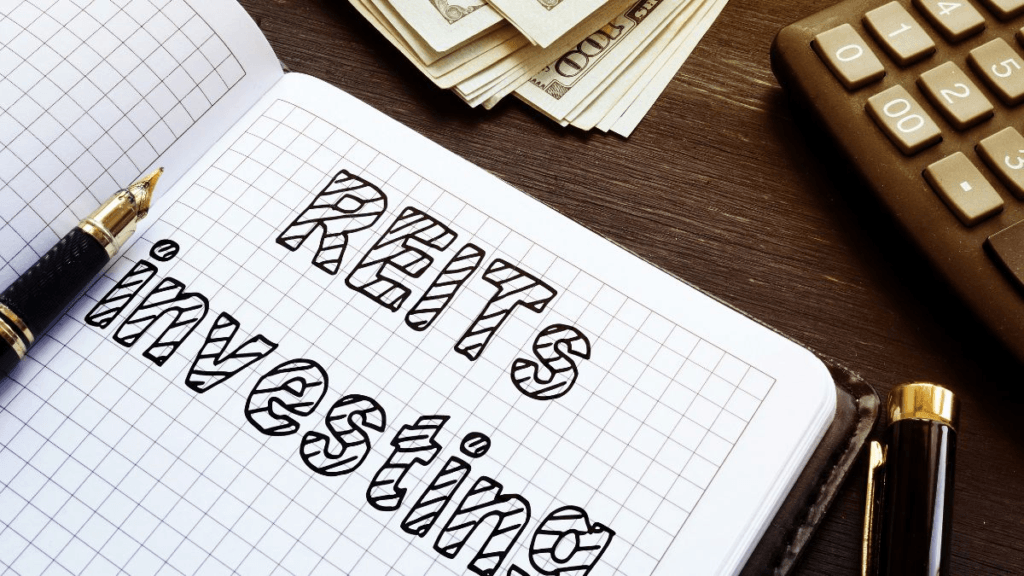 REITs
investing
100
0 1 4
00 2 5
. 3